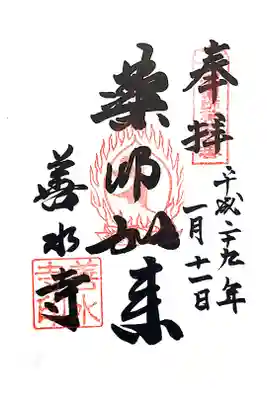 奉拝
平成二十九年
一月十一日
薬師如来
善水寺
善水寺印